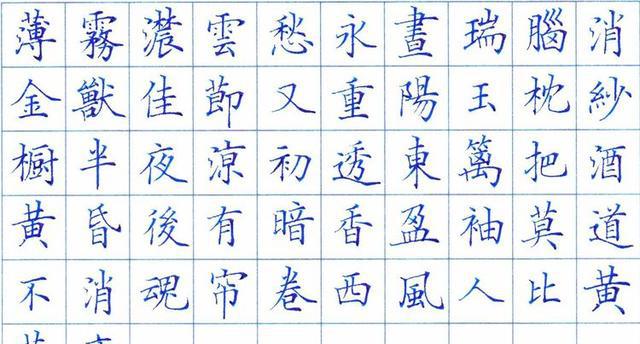 薄霧濃雲愁永晝瑞腦消
金獸佳節又重陽玉枕紗
橱半夜涼初透東篱把酒
黄昏後有暗香盈袖莫道
不消魂帘卷西風人比黄